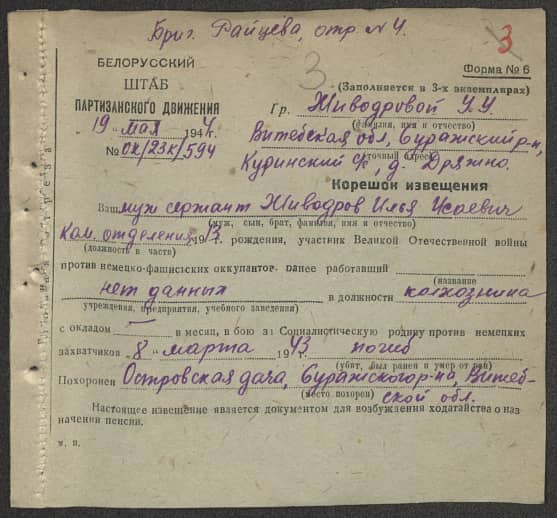 Бриг. Райцева, отр. № 4.
3
БЕЛОРУССКИЙ
ШТАБ
ПАРТИЗАНСКОГО ДВИЖЕНИЯ
19 " мая 1944г.
№ ОК/23К/594
3
Форма № 6
(Заполняется в 3-х экземплярах)
Гр. Живодровой У.У.
(фамилия, имя и отчество)
Витебская обл, Суражский р-н,
(точный адрес)
Кудинский с/с, д. Дряжно.
Корешок извещения
Ваш муж сержант Живодров Илья Исаевич
(муж, сын, брат, фамилия, имя и отчество)
Ком. отделения 19 13 г. рождения, участник Великой Отечественной войны
(должность в части)
против немецко-фашистских оккупантов, ранее работавший
(название
нет данных в должности колхозника
учреждения, предприятия, учебного заведения)
с окладом — в месяц, в бою за Социалистическую родину против немецких
захватчиков " 8 " марта 1943 погиб
(убит, был ранен и умер от ран)
Похоронен Островская дача, Суражского р-на, Витеб-
(место похорон)
ской обл.
Настоящее извещение является документом для возбуждения ходатайства о наз-
начении пенсии.
м. п.